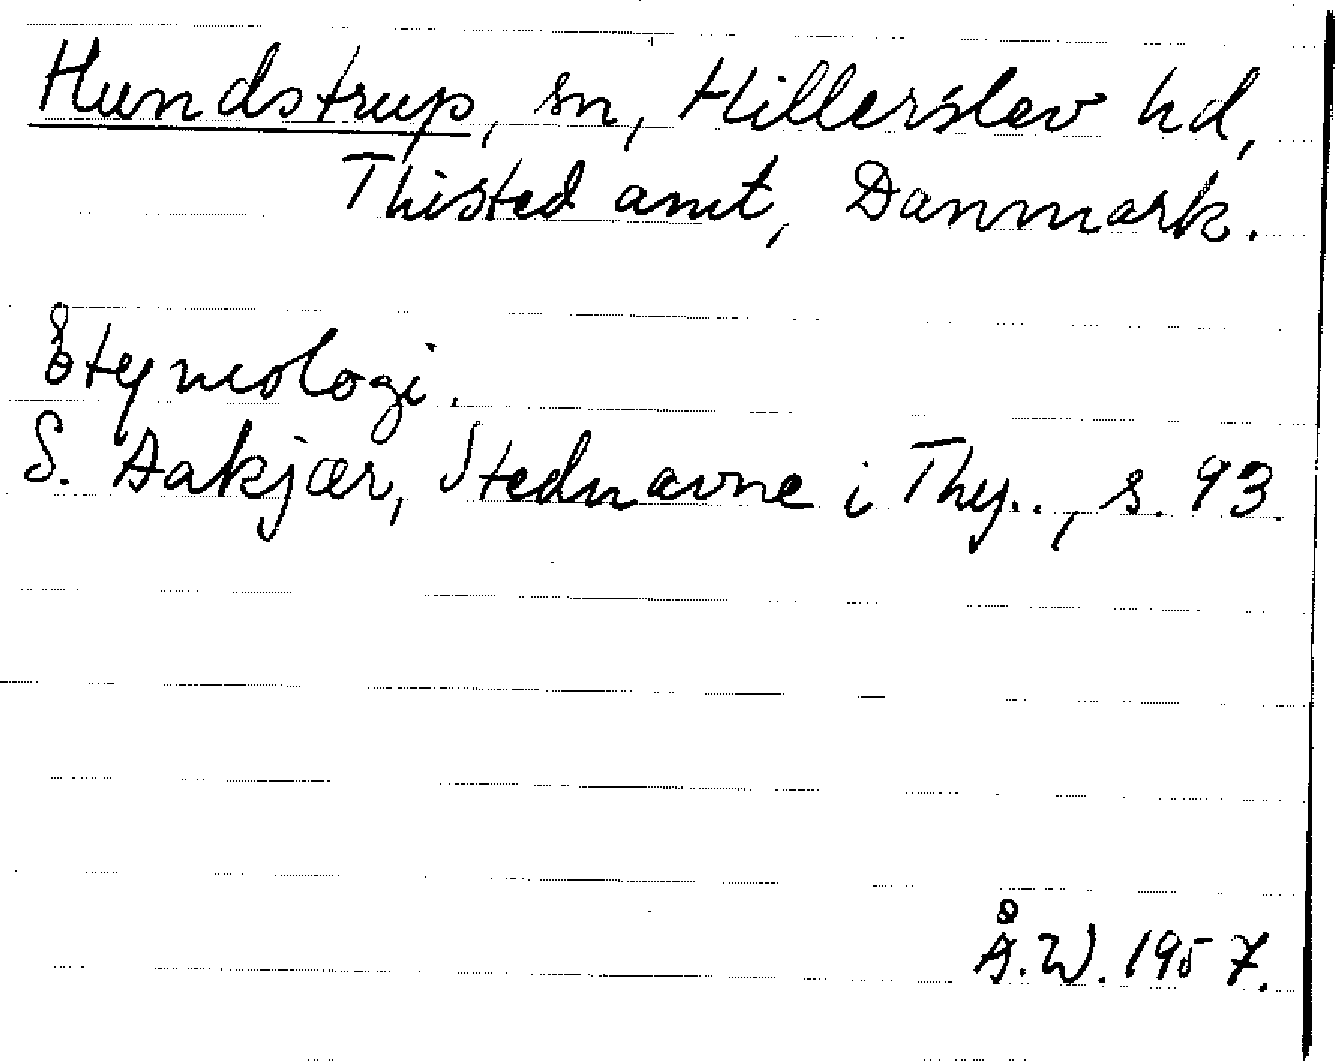 Hundstrup, sn, Hillerslev hd,
Thisted amt, Danmark.
Etymologi.
S. Aakjær, Stednavne i Thy.., s. 93.
Å.W. 1957.